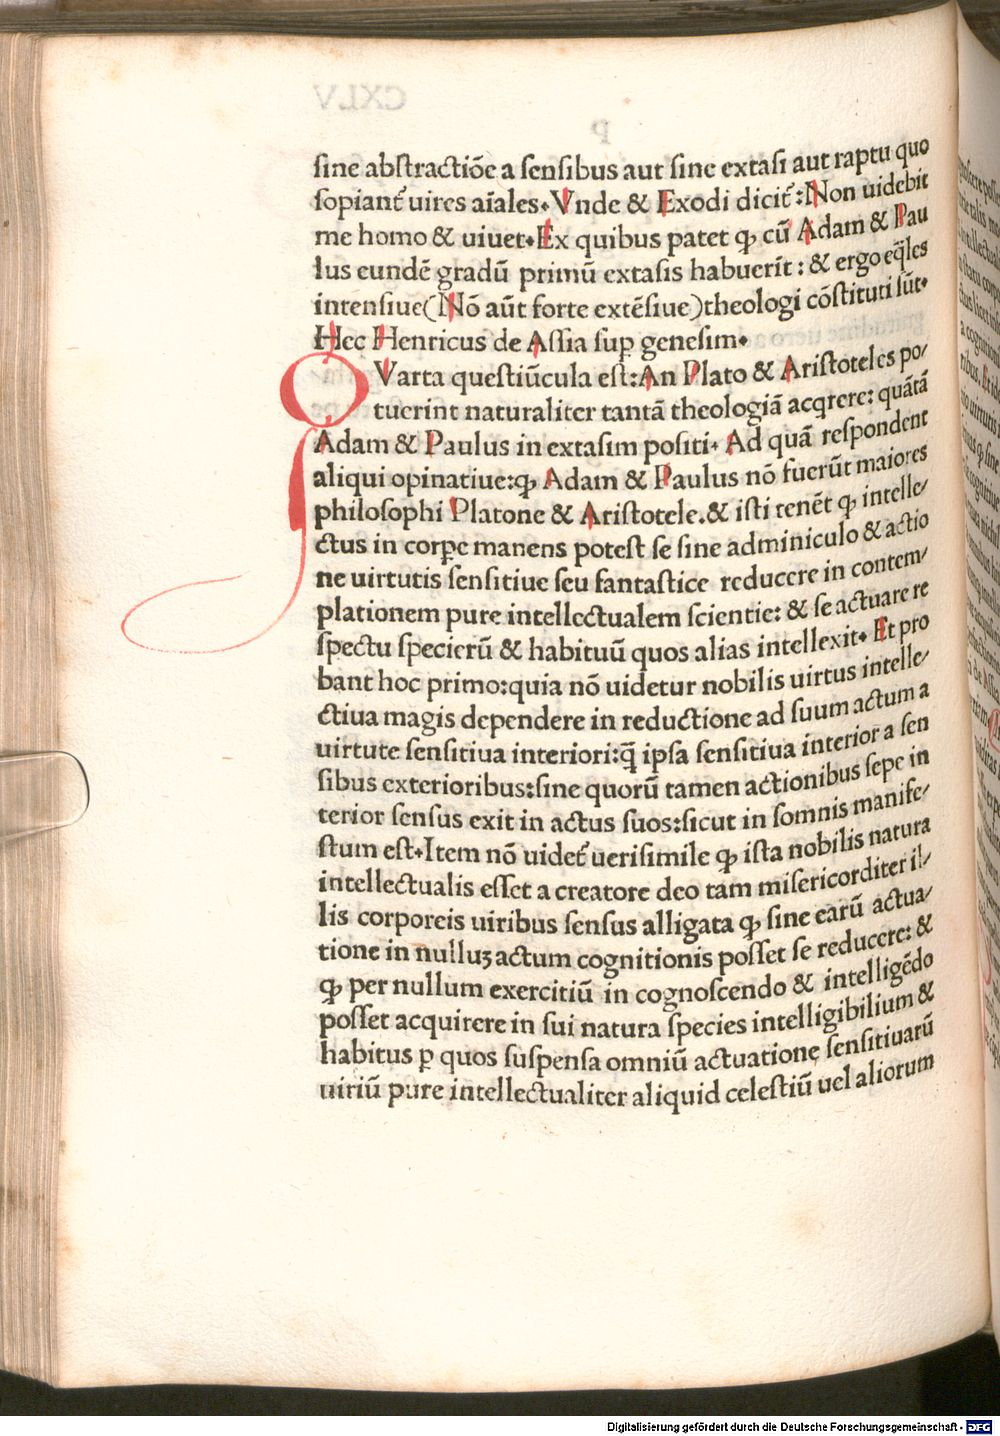 sine abstractiõe a sensibus aut sine extasi aut raptu quo
sopianť uires aïales. Vnde & Exodi diciť: Non uidebit
me homo & uiuet. Ex quibus patet ꝙ cũ Adam & Pau
lus eundẽ gradũ primũ extasis habuerĩt: & ergo eq̃les
intensiue (Nõ aũt forte extẽsiue) theologi cõstituti sũt.
Hec Henricus de Assia suꝑ genesim.
QVarta questiũcula est: An Plato & Aristoteles po/
tuerint naturaliter tantã theologiã acqrere: quãtã
Adam & Paulus in extasim positi. Ad quã respondent
aliqui opinatiue: ꝙ Adam & Paulus nõ fuerũt maiores
philosophi Platone & Aristotele. & isti tenẽt ꝙ intelle/
ctus in corꝑe manens potest se sine adminiculo & actio
ne uirtutis sensitiue seu fantastice reducere in contem/
plationem pure intellectualem scientie: & se actuare re
spectu specierũ & habituũ quos alias intellexit. Et pro
bant hoc primo: quia nõ uidetur nobilis uirtus intelle/
ctiua magis dependere in reductione ad suum actum a
uirtute sensitiua interiori: q̃ ipsa sensitiua interior a sen
sibus exterioribus: sine quorũ tamen actionibus sepe in
terior sensus exit in actus suos: sicut in somnis manife/
stum est. Item nõ uideť uerisimile ꝙ ista nobilis natura
intellectualis esset a creatore deo tam misericorditer il/
lis corporeis uiribus sensus alligata ꝙ sine earũ actua/
tione in nulluʒ actum cognitionis posset se reducere: &
ꝙ per nullum exercitiũ in cognoscendo & intelligẽdo
posset acquirere in sui natura species intelligibilium &
habitus ꝑ quos suspensa omniũ actuatione sensitiuarũ
uiriũ pure intellectualiter aliquid celestiũ uel aliorum
Digitalisierung gefördert durch die Deutsche Forschungsgemeinschaft - DFG